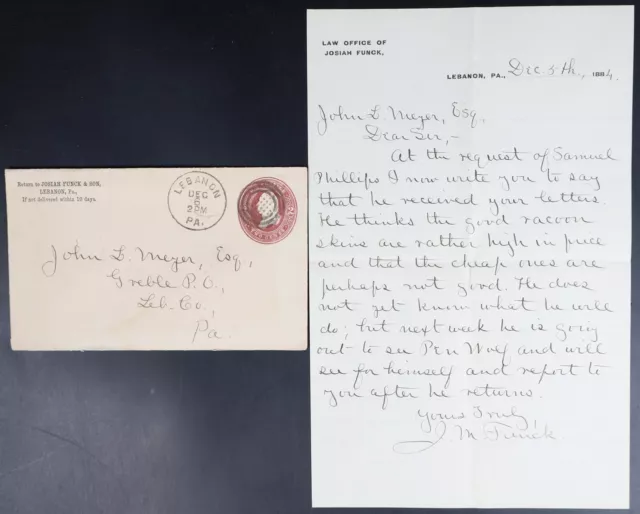 Return to JOSIAH FUNCK & SON,
LEBANON, Pa.,
If not delivered within 10 days.
LEBANON
DEC
5
2PM
PA.
John L. Meyer, Esq.,
Greble P.O.,
Leb. Co.,
Pa.
LAW OFFICE OF
JOSIAH FUNCK,
LEBANON, PA., Dec. 5th, 1884.
John L. Meyer, Esq,
Dear Sir,-
At the request of Samuel
Phillips I now write you to say
that he received your letters.
He thinks the good racoon
skins are rather high in price
and that the cheap ones are
perhaps not good. He does
not yet know what he will
do; but next week he is going
out to see Pen Wolf and will
see for himself and report to
you after he returns.
Yours Truly,
J. M. Funck